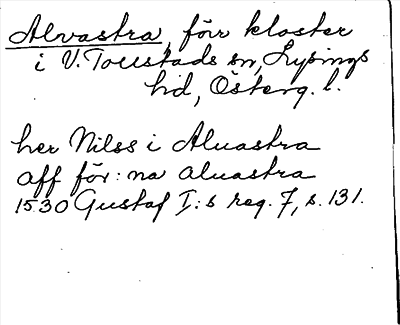 Alvastra, förr kloster
i V. Tollstads sn, Lysings
hd, Österg. l.
her Nilss i Aluastra
aff för: na aluastra
1530 Gustaf I:s reg. 7, s. 131.